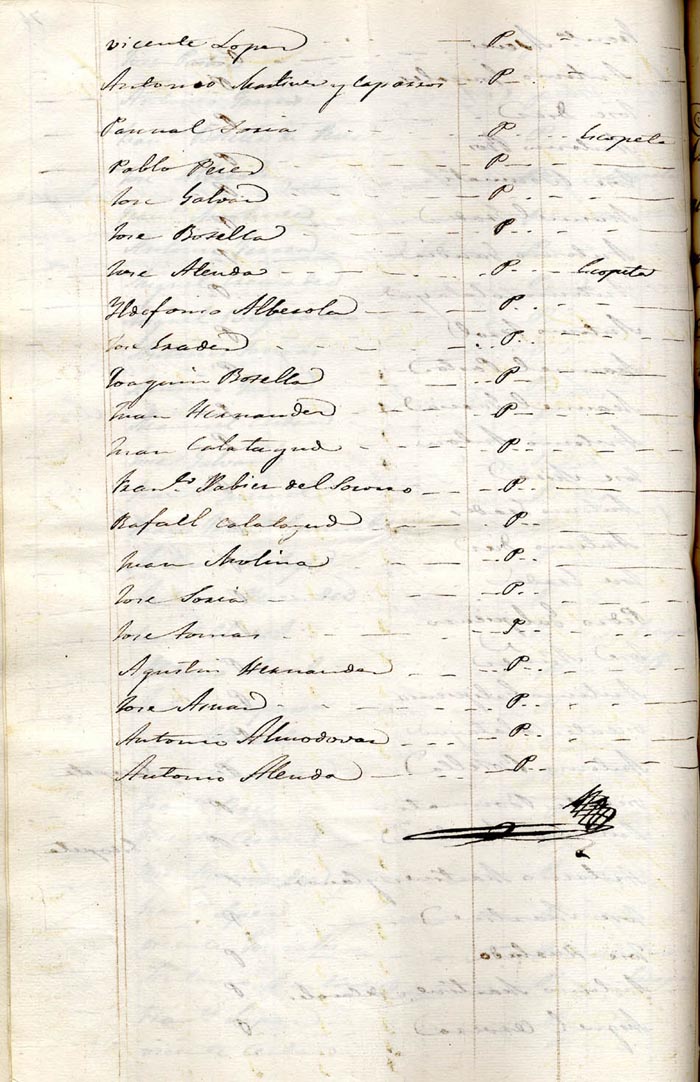 Vicente Lopez P
Antonio Martines y Caparros P
Pasqual Soria P Escopeta
Pablo Perez P
Jose Galvan P
Jose Botella P
Jose Alenda P Escopeta
Yldefonso Alberola P
Jose P
Joaquin Botella P
Juan Hernandez P
Juan Calatayud P
Fran.co Xabier del Socorro P
Rafaell Calatayud P
Juan Molina P
Jose Soria P
Jose Tomas P
Agustin Hernandez P
Jose Aznar P
Antonio Almodovar P
Antonio Alenda P